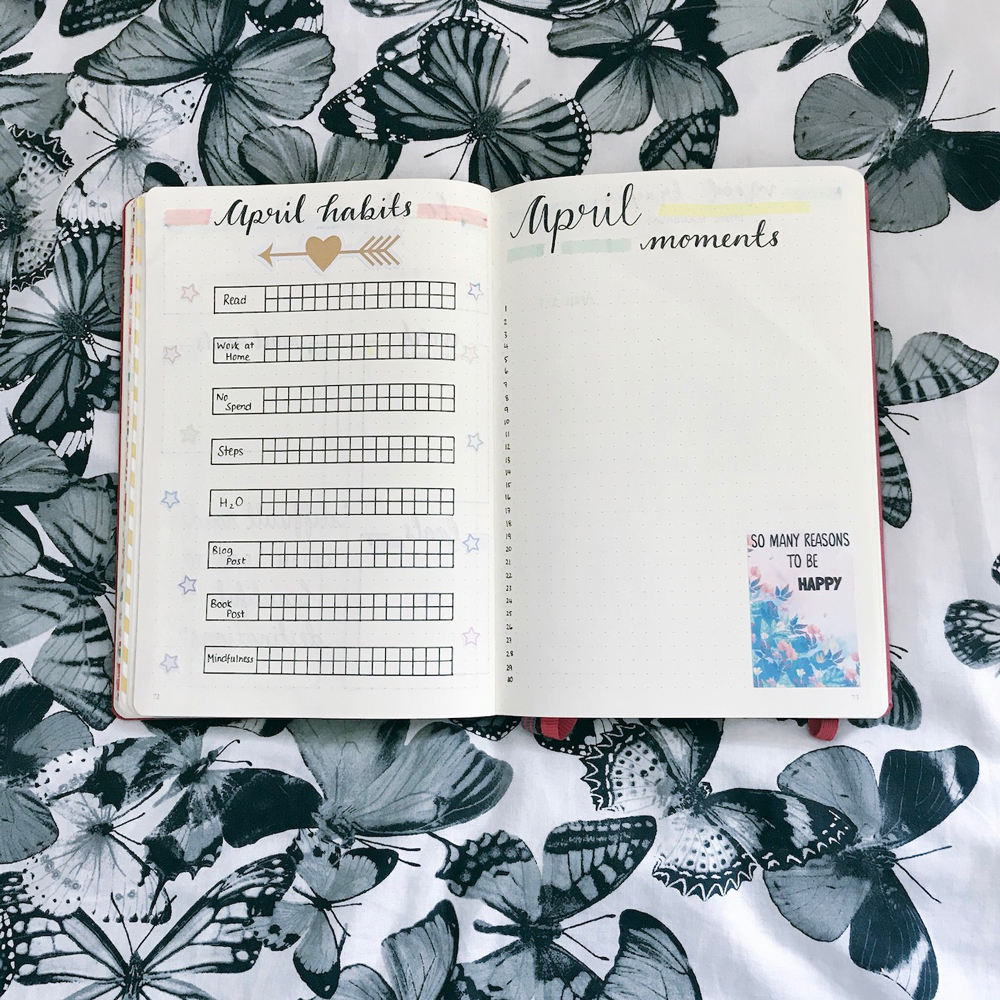 April habits
Read
Work at
Home
No
Spend
Steps
H₂O
Blog
Post
Book
Post
Mindfulness
72
April
moments
1
2
3
4
5
6
7
8
9
10
11
12
13
14
15
16
17
18
19
20
21
22
23
24
25
26
27
28
29
30
SO MANY REASONS
TO BE
HAPPY
73